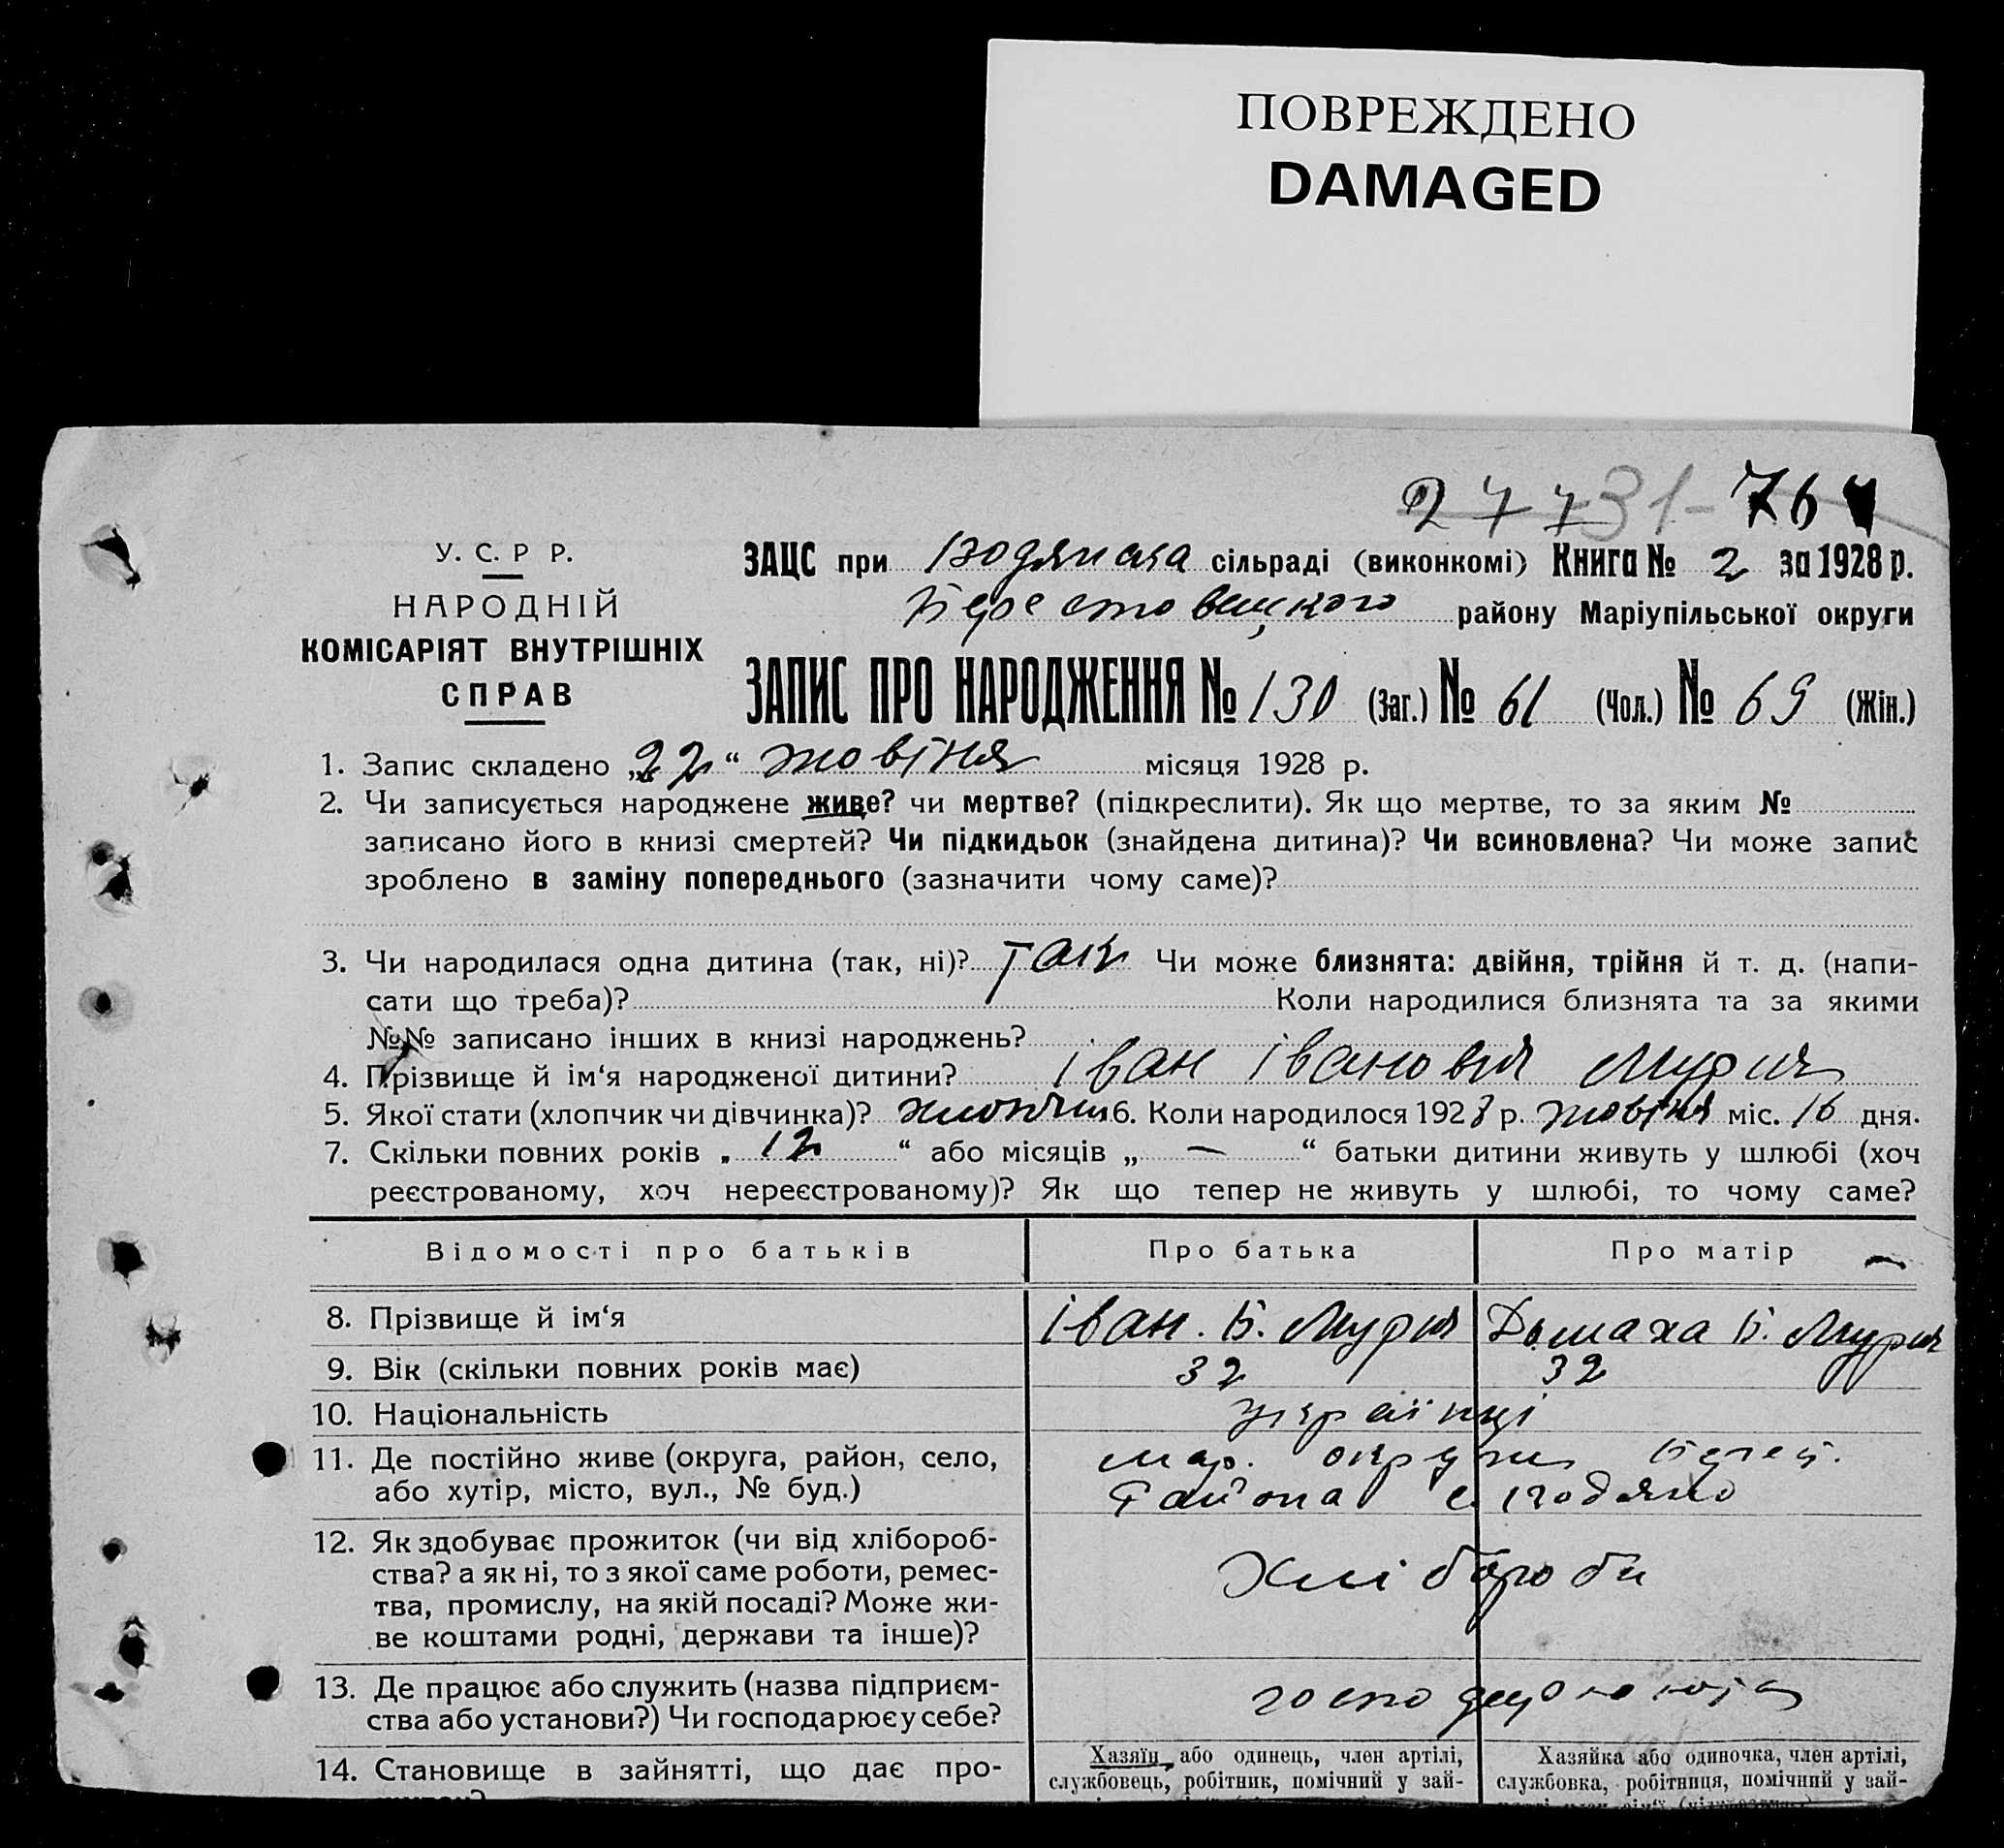 ПОВРЕЖДЕНО
DAMAGED
2 7 7 31- 76
У. С. Р Р.
НАРОДНІЙ
КОМІСАРІЯТ ВНУТРІШНІХ
СПРАВ
ЗАЦС при Водянська сільраді (виконкомі) Книга № 2 за 1928 р.
району Маріупільської округи
ЗАПИС ПРО НАРОДЖЕННЯ № 130 (Заг.) № 61 (Чол.) № 69 (Жін.)
1. Запис складено „22“ жовтня місяця 1928 р.
2. Чи записується народжене живе? чи мертве? (підкреслити). Як що мертве, то за яким №
записано його в книзі смертей? Чи підкидьок (знайдена дитина)? Чи всиновлена? Чи може запис
зроблено в заміну попереднього (зазначити чому саме)?
3. Чи народилася одна дитина (так, ні)? так Чи може близнята: двійня, трійня й т. д. (напи-
сати що треба)? Коли народилися близнята та за якими
№№ записано інших в книзі народжень?
4. Прізвище й ім‘я народженої дитини? Іван Іванович
5. Якої стати (хлопчик чи дівчинка)? хлопчик 6. Коли народилося 1928 р. жовтня міс. 16 дня.
7. Скільки повних років „ 12 “ або місяців „ — “ батьки дитини живуть у шлюбі (хоч
реєстрованому, хоч нереєстрованому)? Як що тепер не живуть у шлюбі, то чому саме?
Відомості про батьків Про батька Про матір —
8. Прізвище й ім‘я Іван. Б. Домаха Б.
9. Вік (скільки повних років має) 32 32
10. Національність українці
11. Де постійно живе (округа, район, село, мар. округи
або хутір, місто, вул., № буд.) района с. Водяно
12. Як здобуває прожиток (чи від хлібороб-
ства? а як ні, то з якої саме роботи, ремес-
тва, промислу, на якій посаді? Може жи-
ве коштами родні, держави та інше)? Хлібороби
13. Де працює або служить (назва підприєм-
ства або установи?) Чи господарює у себе?
14. Становище в зайнятті, що дає про-
Хазяїн або одинець, член артілі,
службовець, робітник, помічний у зай-
Хазяйка або одиночка, член артілі,
службовка, робітниця, помічний у зай-